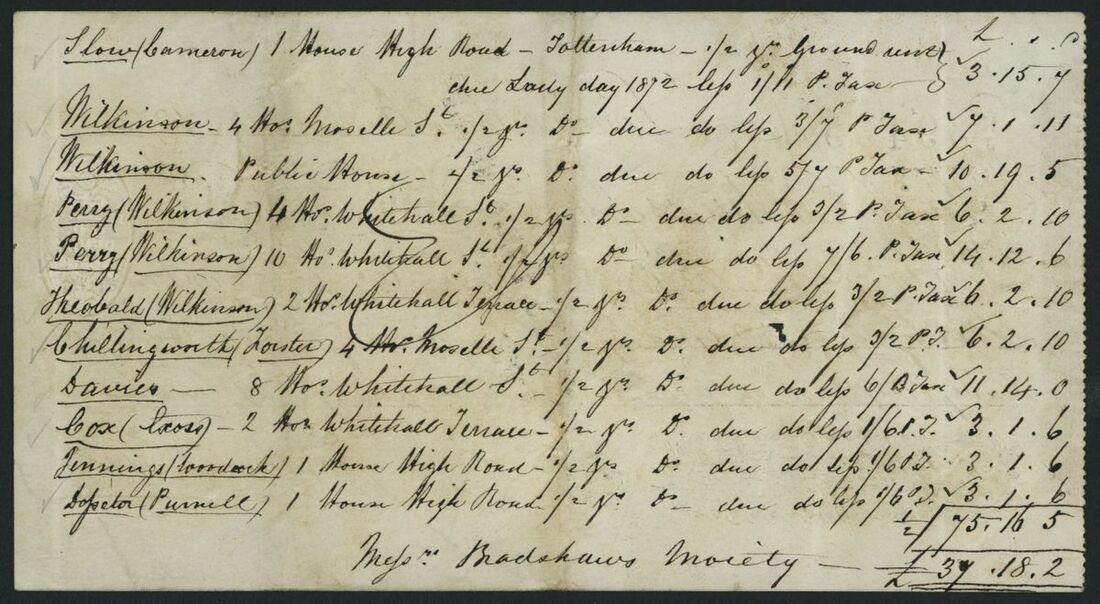 £ . s . D
Slow (Cameron) 1 House High Road – Tottenham – 1/2 yr. Ground rent
due Lady day 1872 less 1/11 P. Tax 3 . 15 . 7
Wilkinson – 4 Hos. Moselle St. 1/2 yr. Do – due do less 3/7 P Tax 7 . 1 . 11
Wilkinson . Public House – 1/2 yr. Do. due do less 5/7 P Tax – 10 . 19 . 5
Perry (Wilkinson) 4 Hos. Whitehall St. 1/2 yr. Do – due do less 3/2 P. Tax 6 . 2 . 10
Perry (Wilkinson) 10 Hos. Whitehall St. 1/2 yr. Do – due do less 7/6 P. Tax 14 . 12 . 6
Theobald (Wilkinson) 2 Hos. Whitehall Terrace – 1/2 yr. Do. due do less 3/2 P. Tax 6 . 2 . 10
Chillingworth (Forster) 4 Hos. Moselle St. – 1/2 yr. Do. due do less 3/2 P. T. 6 . 2 . 10
Davies — 8 Hos. Whitehall St. – 1/2 yr. Do. due do less 6/ P Tax 11 . 14 . 0
Cox ( ) – 2 Hos. Whitehall Terrace – 1/2 yr. Do. due do less 1/6 P. T. 3 . 1 . 6
Jennings (Woodcock) 1 House High Road – 1/2 yr. Do. due do less 1/6 P T. 3 . 1 . 6
(Purnell) 1 House High Road 1/2 yr. Do – due do less 1/6 P T. 3 . 1 . 6
1/2 75 . 16 5
Messrs. Bradshaws Moiety — £ 37 . 18 . 2